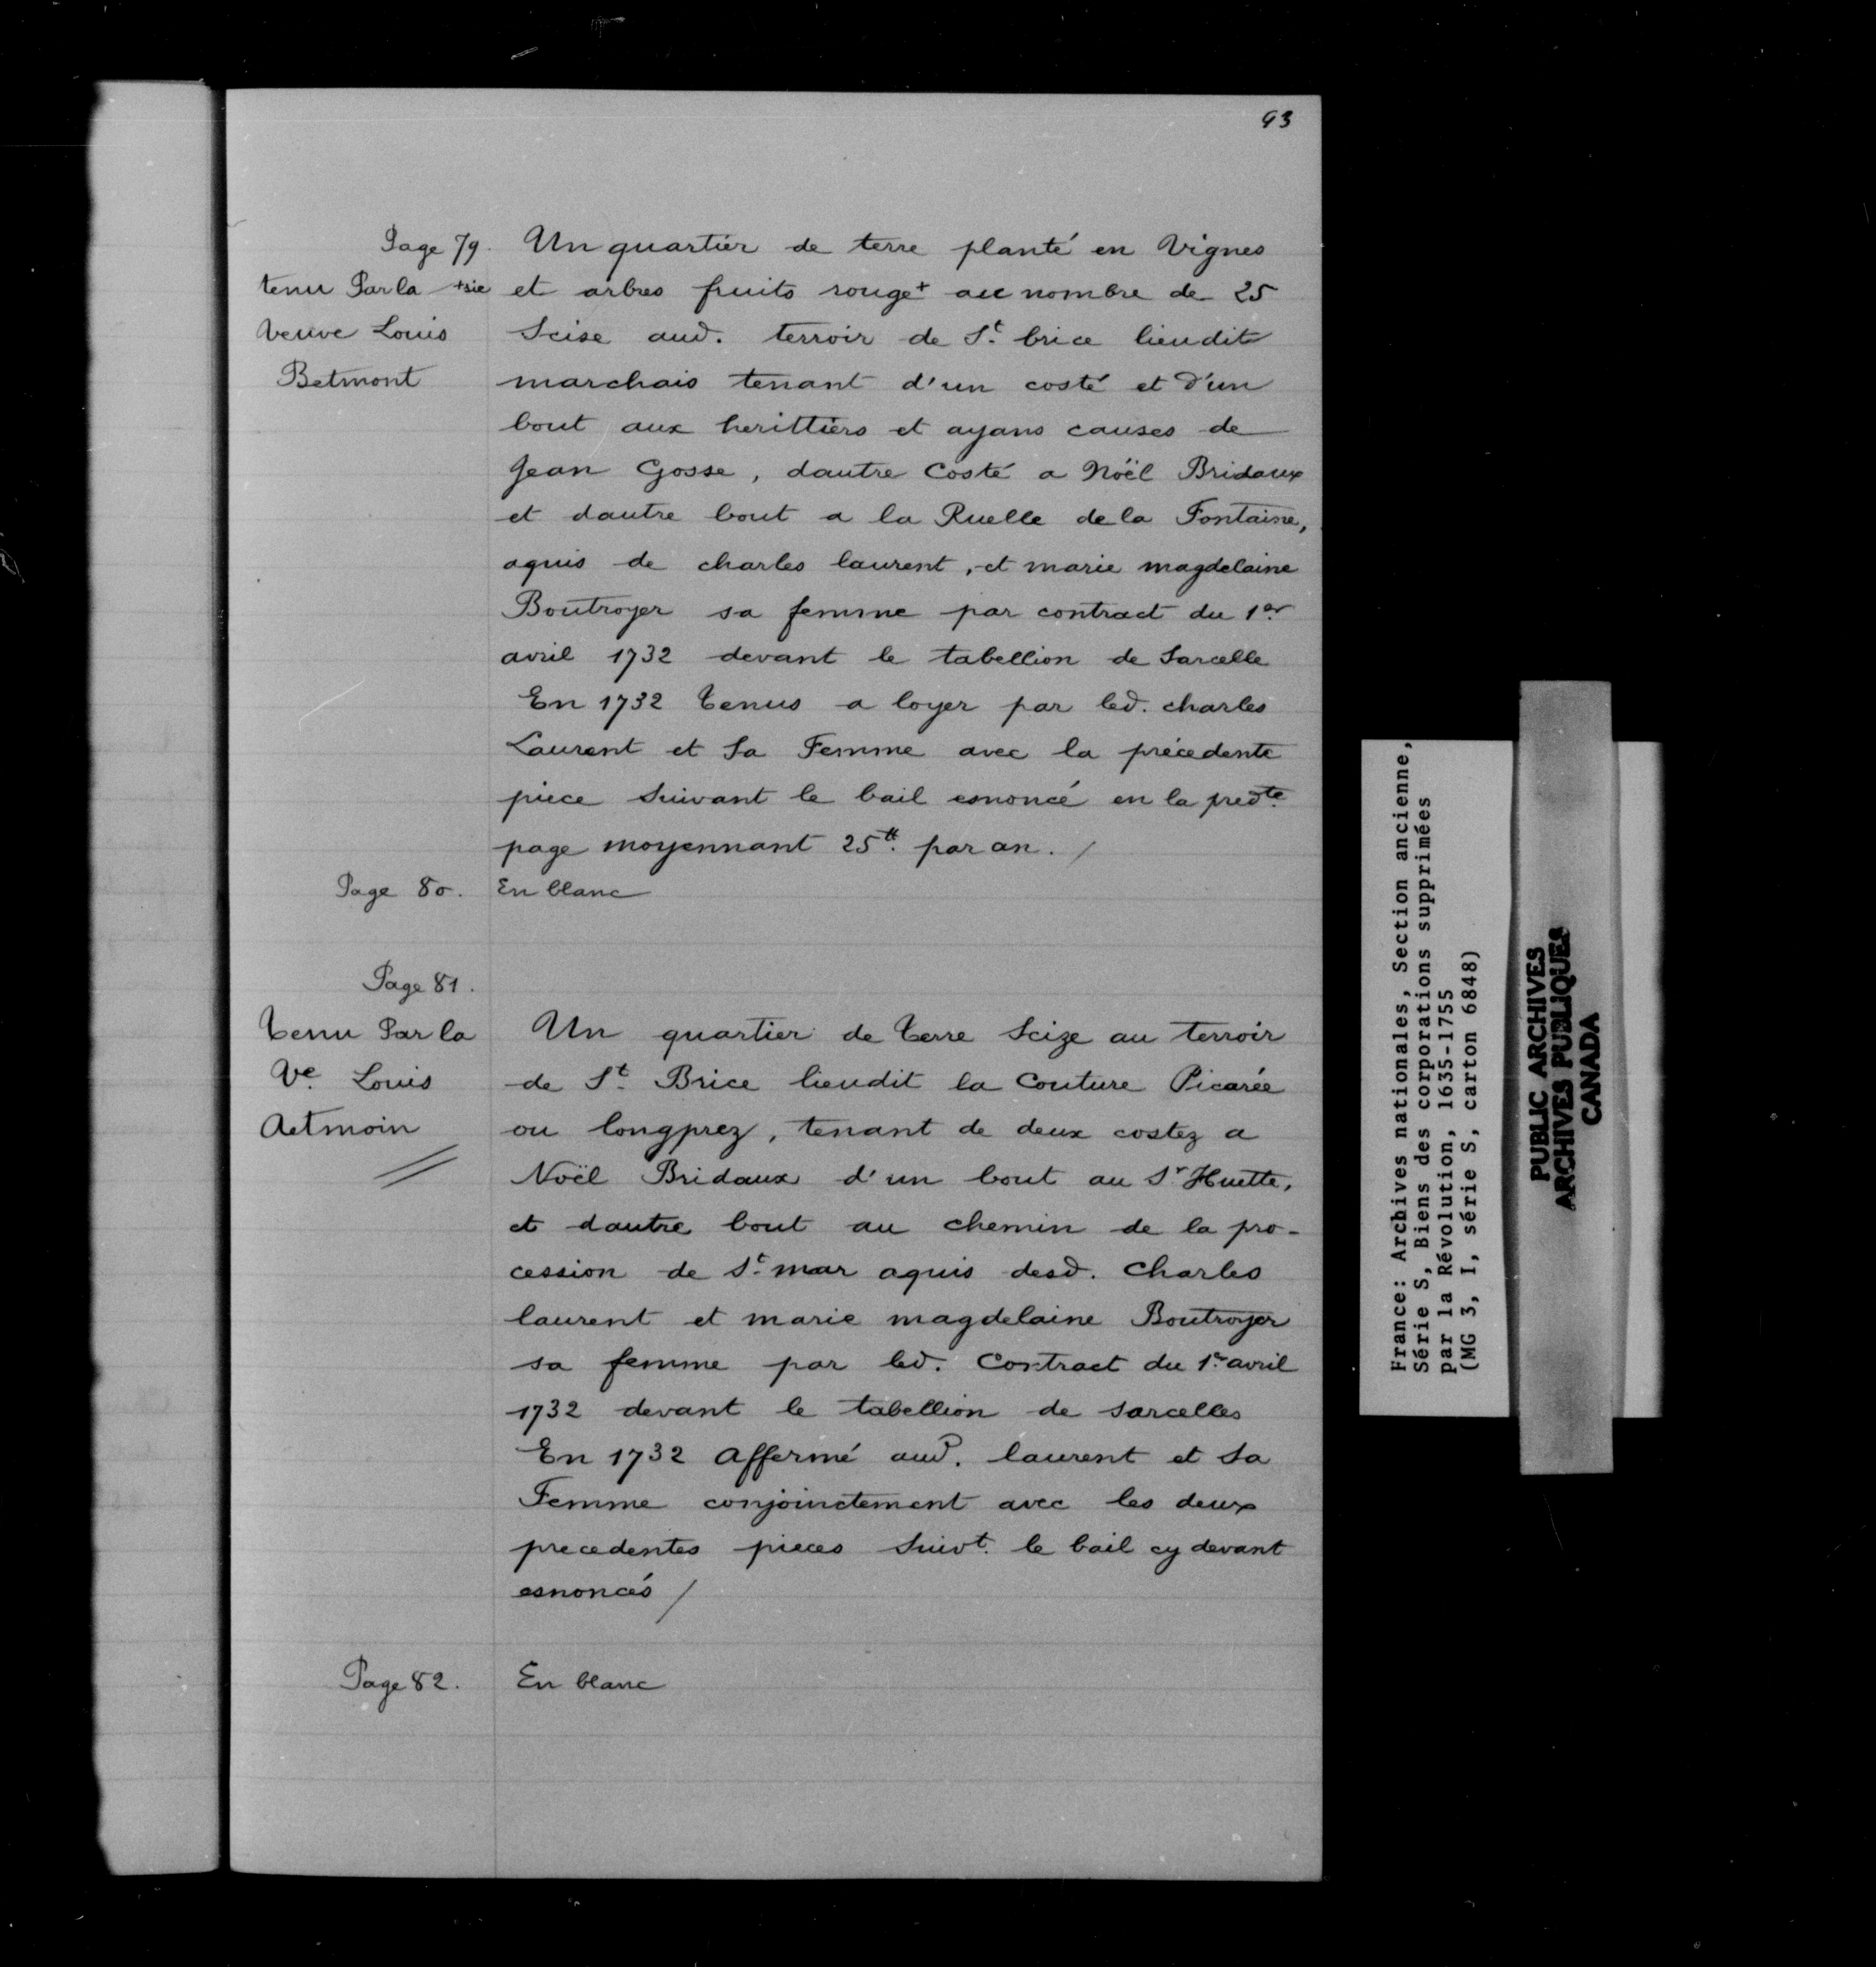 93
Page 79.
tenu Par la +sic
Veuve Louis
Betmont
Un quartier de terre planté en Vignes
et arbres fruits rouge+ au nombre de 25
Scise aud. terroir de St. brice lieudit
marchais tenant d'un costé et d'un
bout aux herittiers et ayans causes de
Jean Gosse, dautre Costé a Nöel Bridaux
et dautre bout a la Ruelle de la Fontaine,
aquis de charles laurent, et marie magdelaine
Boutroyer sa femme par contract du 1er
avril 1732 devant le tabellion de Sarcelle
En 1732 tenus a loyer par led. charles
Laurent et Sa Femme avec la précedente
piece Suivant le bail esnoncé en la predte
page moyennant 25tt. par an. /
Page 80.
En blanc
Page 81.
tenu Par la
Ve. Louis
Aetmoin
Un quartier de terre Scize au terroir
de St. Brice lieudit la Couture Picarée
ou longprez, tenant de deux costez a
Noël Bridaux d'un bout au Sr Huette,
et dautre bout au chemin de la pro-
cession de St. mar aquis desd. Charles
laurent et marie magdelaine Boutroyer
sa femme par led. Contract du 1er avril
1732 devant le tabellion de sarcelles
En 1732 affermé aud. laurent et Sa
Femme conjoinctement avec les deux
precedentes pieces Suivt. le bail cy devant
esnoncés /
Page 82.
En blanc
France: Archives nationales, Section ancienne,
Série S, Biens des corporations supprimées
par la Révolution, 1635-1755
(MG 3, I, série S, carton 6848)
PUBLIC ARCHIVES
ARCHIVES PUBLIQUES
CANADA